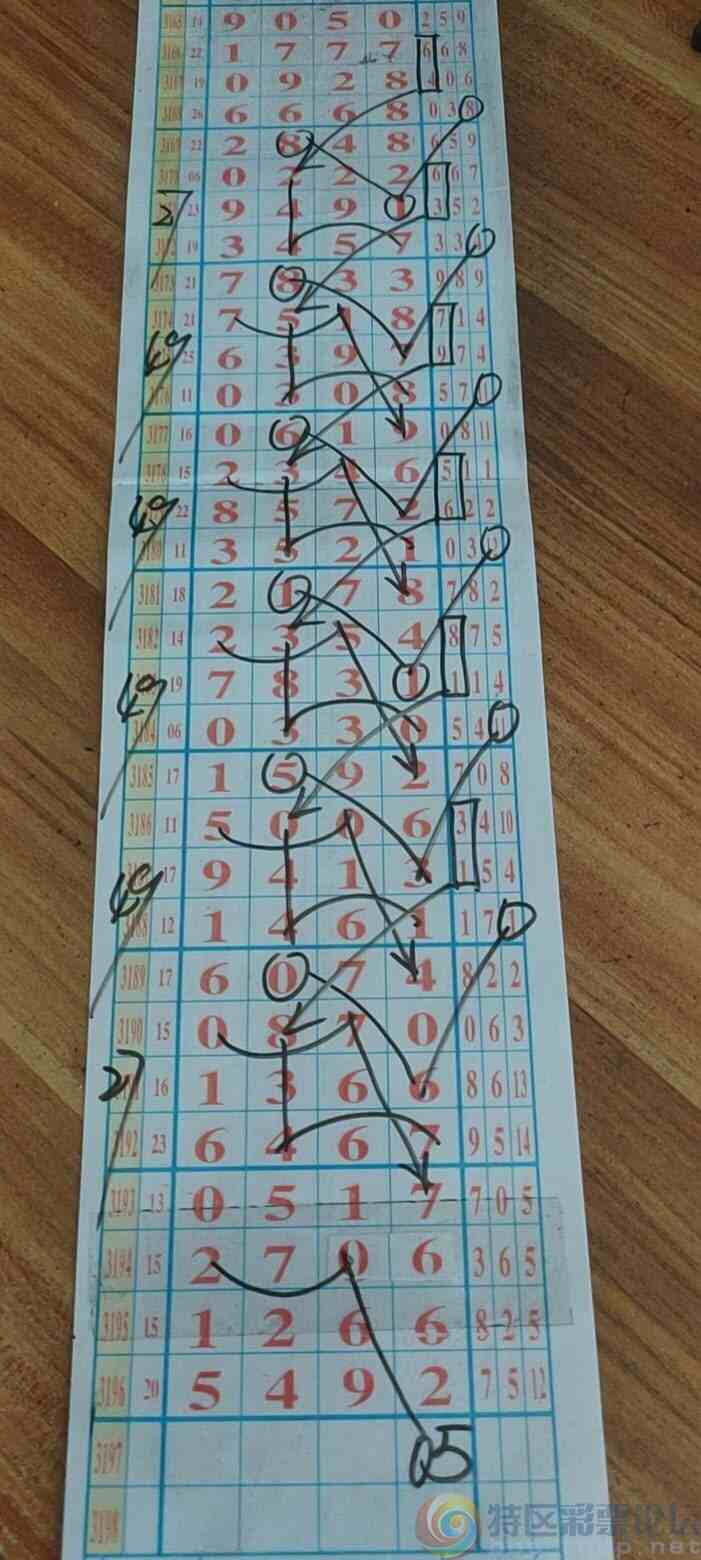 3165 19 9 0 5 0 2 5 9
3166 22 1 7 7 7 6 6 8
3167 19 0 9 2 8 4 0 6
3168 26 6 6 6 8 0 3 8
3169 22 2 8 4 8 6 5 9
3170 06 0 2 2 2 6 6 7
27 23 9 4 9 1 3 5 2
3172 19 3 4 5 7 3 3
3173 21 7 8 3 3 9 8 9
3174 21 7 5 1 8 7 1 4
49 25 6 3 9 7 9 7 4
3176 11 0 3 0 8 5 7 11
3177 16 0 6 1 9 0 8 11
3178 15 2 3 4 6 5 1 1
49 22 8 5 7 2 6 2 2
3180 11 3 5 2 1 0 3
3181 18 2 1 7 8 7 8 2
3182 14 2 3 5 4 8 7 5
49 19 7 8 3 1 1 1 4
3184 06 0 3 3 0 5 4 11
3185 17 1 5 9 2 7 0 8
3186 11 5 0 0 6 3 4 10
49 17 9 4 1 3 1 5 4
3188 12 1 4 6 1 1 7
3189 17 6 0 7 4 8 2 2
3190 15 0 8 7 0 0 6 3
27 16 1 3 6 6 8 6 13
3192 23 6 4 6 7 9 5 14
3193 13 0 5 1 7 7 0 5
3194 15 2 7 0 6 3 6 5
3195 15 1 2 6 6 8 2 5
3196 20 5 4 9 2 7 5 12
3197 05
3198
特区彩票论坛